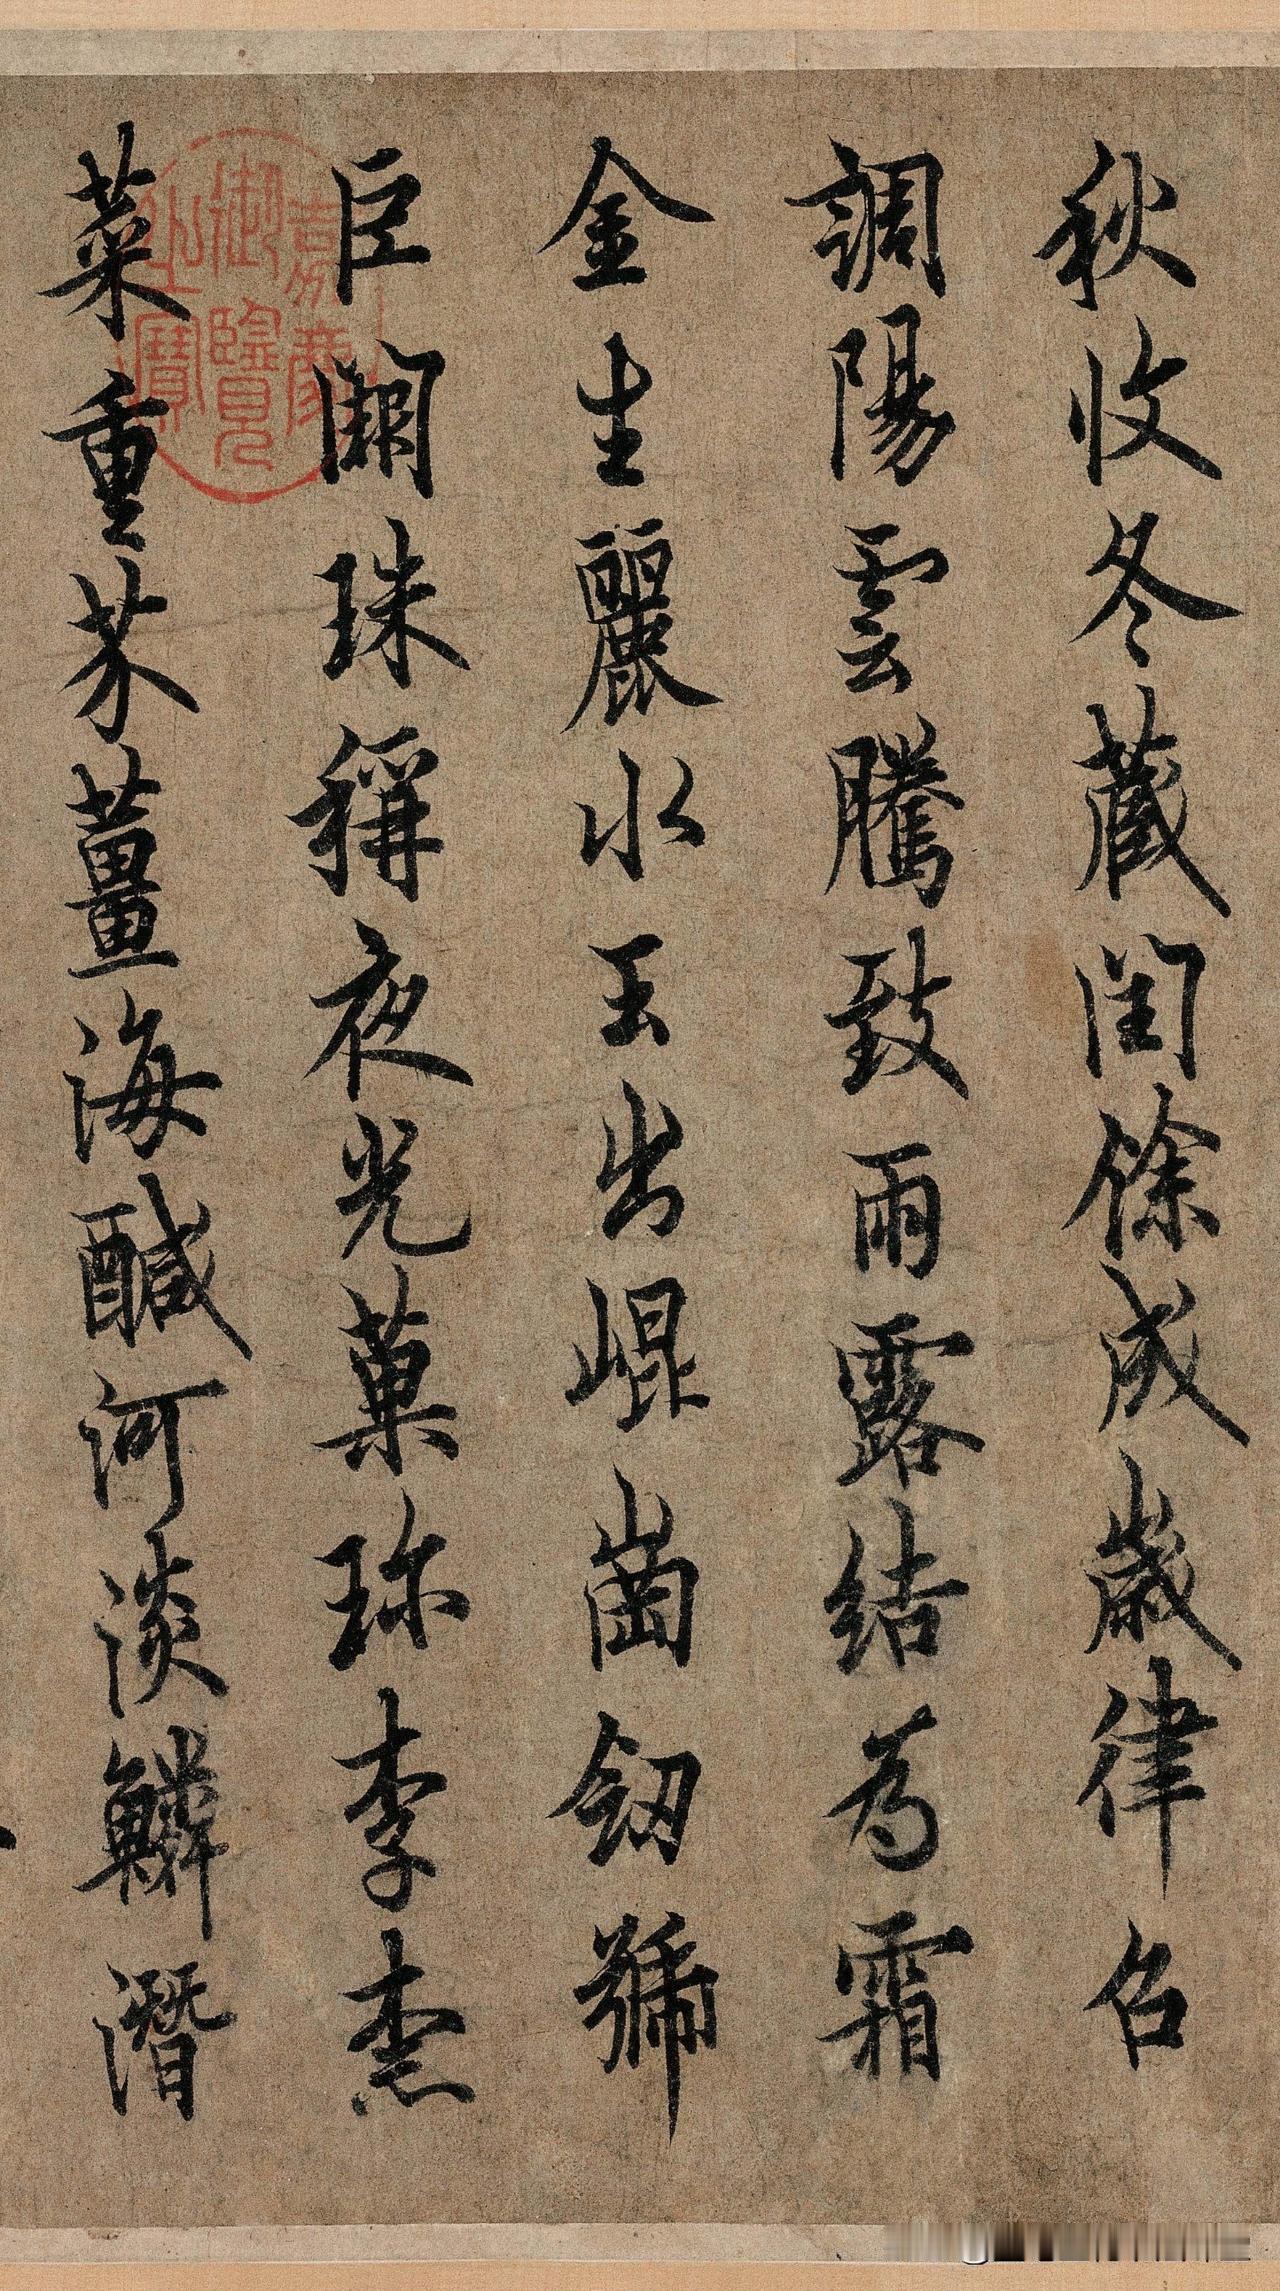 秋收冬藏閏餘成歲律召
調陽雲騰致雨露結為霜
金生麗水玉出崐崗釼號
巨闕珠稱夜光菓珍李柰
菜重芥薑海醎河淡鱗潛
嘉慶御覽之寶